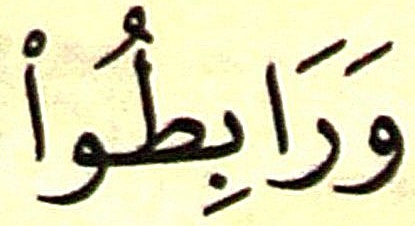 وَرَابِطُواْ